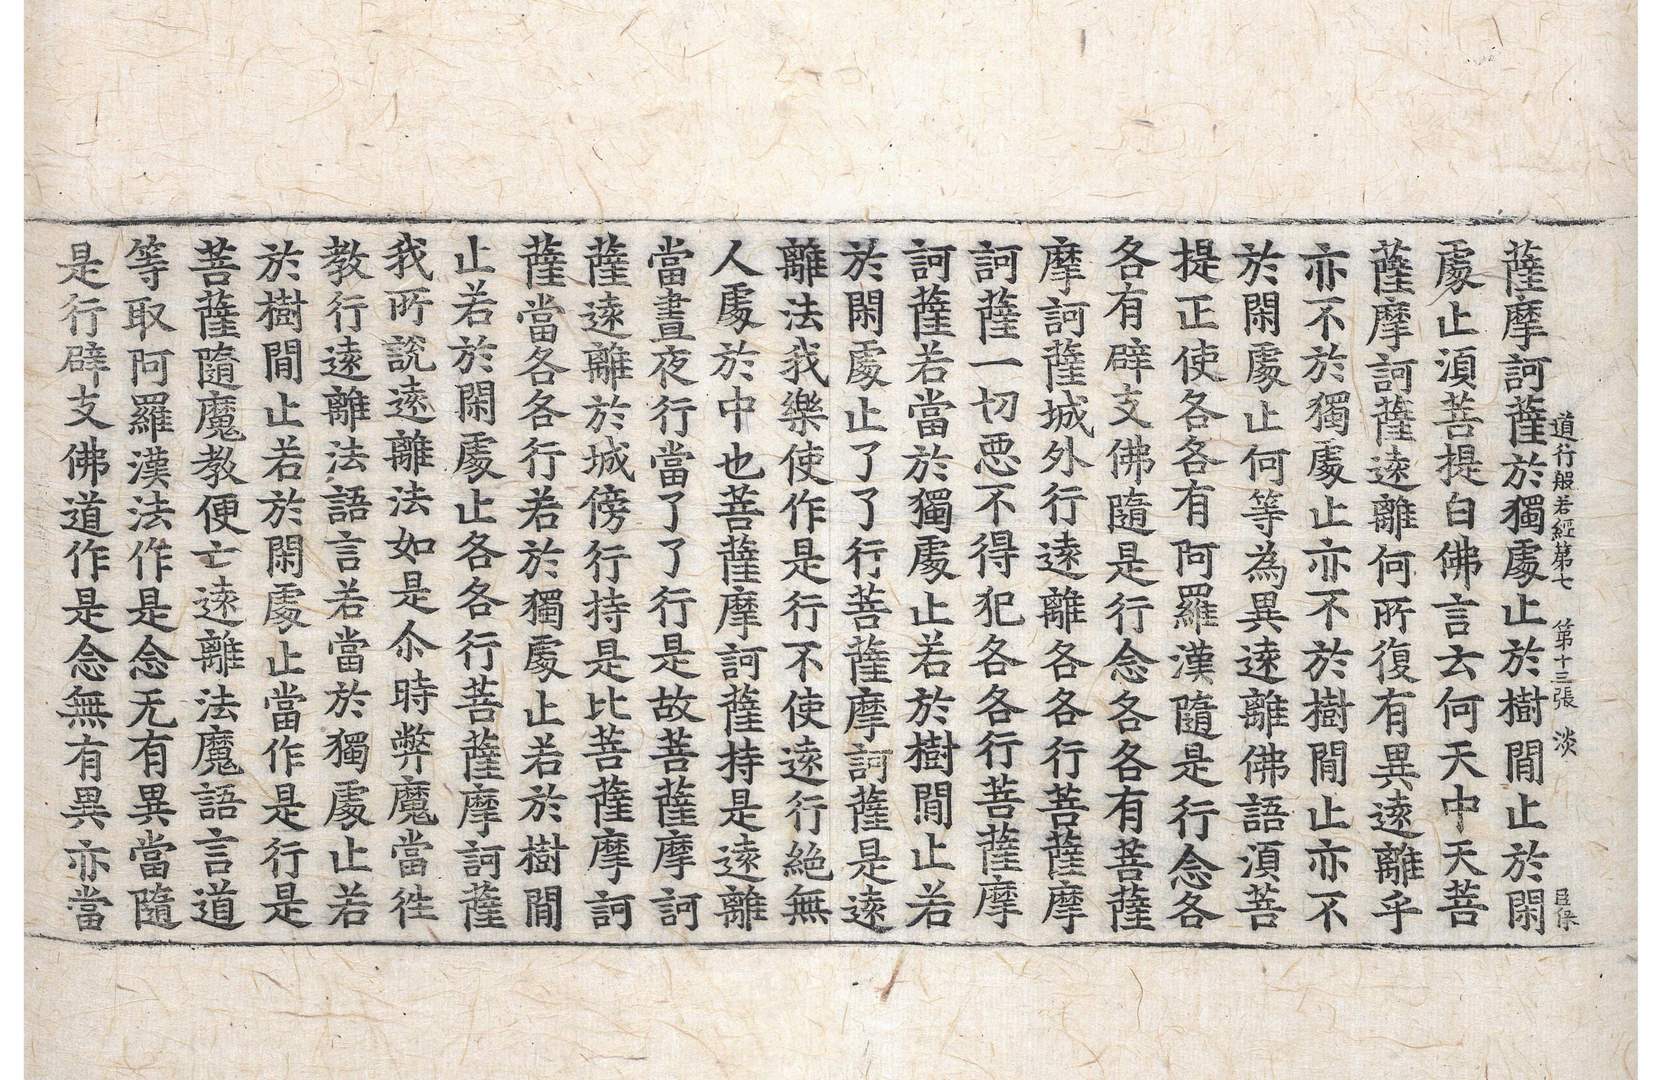 道行般若經第七 第十三張 淡 臣保
薩摩訶薩於獨處止於樹閒止於閑
處止須菩提白佛言云何天中天菩
薩摩訶薩遠離何所復有異遠離乎
亦不於獨處止亦不於樹閒止亦不
於閑處止何等為異遠離佛語須菩
提正使各各有阿羅漢隨是行念各
各有辟支佛隨是行念各各有菩薩
摩訶薩城外行遠離各各行菩薩摩
訶薩一切惡不得犯各各行菩薩摩
訶薩若當於獨處止若於樹閒止若
於閑處止了了行菩薩摩訶薩是遠
離法我樂使作是行不使遠行絕無
人處於中也菩薩摩訶薩持是遠離
當晝夜行當了了行是故菩薩摩訶
薩遠離於城傍行持是比菩薩摩訶
薩當各各行若於獨處止若於樹閒
止若於閑處止各各行菩薩摩訶薩
我所說遠離法如是尒時弊魔當往
教行遠離法語言若當於獨處止若
於樹閒止若於閑處止當作是行是
菩薩隨魔教便亡遠離法魔語言道
等取阿羅漢法作是念无有異當隨
是行辟支佛道作是念無有異亦當